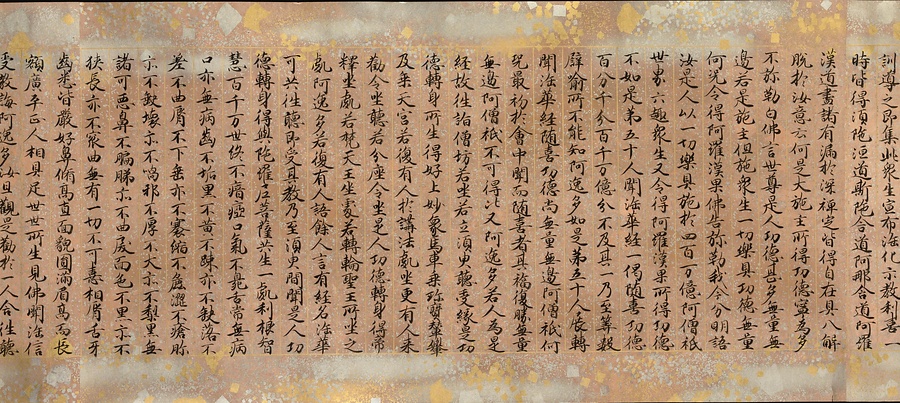 訓導之即集此衆生宣布法化示教利喜一
時皆得須陀洹道斯陀含道阿那含道阿羅
漢道盡諸有漏於深禪定皆得自在具八解
脫於汝意云何是大施主所得功德寧為多
不弥勒白佛言世尊是人功德甚多無量無
邊若是施主但施衆生一切樂具功德無量
何况令得阿羅漢果佛告弥勒我今分明語
汝是人以一切樂具施於四百万億阿僧祇
世界六趣衆生又令得阿羅漢果所得功德
不如是第五十人聞法華經一偈随喜功德
百分千分百千万億分不及其一乃至筭數
譬喻所不能知阿逸多如是第五十人展轉
聞法華經随喜功德尚無量無邊阿僧祇何
况最初於會中聞而随喜者其福復勝無量
無邊阿僧祇不可得比又阿逸多若人為是
經故往詣僧坊若坐若立須臾聽受緣是功
德轉身所生得好上妙象馬車乗珍寶輦轝
及乗天宮若復有人於講法處坐更有人来
勸令坐聽若分座令坐是人功德轉身得帝
釋坐處若梵天王坐處若轉輪聖王所坐之
處阿逸多若復有人語餘人言有經名法華
可共往聽即受其教乃至須臾間聞是人功
德轉身得與陀羅尼菩薩共生一處利根智
慧百千万世終不瘖瘂口氣不臭舌常無病
口亦無病齒不垢黑不黄不踈亦不缺落不
差不曲脣不下垂亦不褰縮不麁澁不瘡胗
亦不缺壞亦不喎邪不厚不大亦不黧黑無
諸可惡鼻不膈㔸亦不曲戾面色不黑亦不
狹長亦不窊曲無有一切不可喜相脣舌牙
齒悉皆嚴好鼻脩高直面貌圓滿眉高而長
額廣平正人相具足世世所生見佛聞法信
受教誨阿逸多汝且觀是勸於一人令往聽